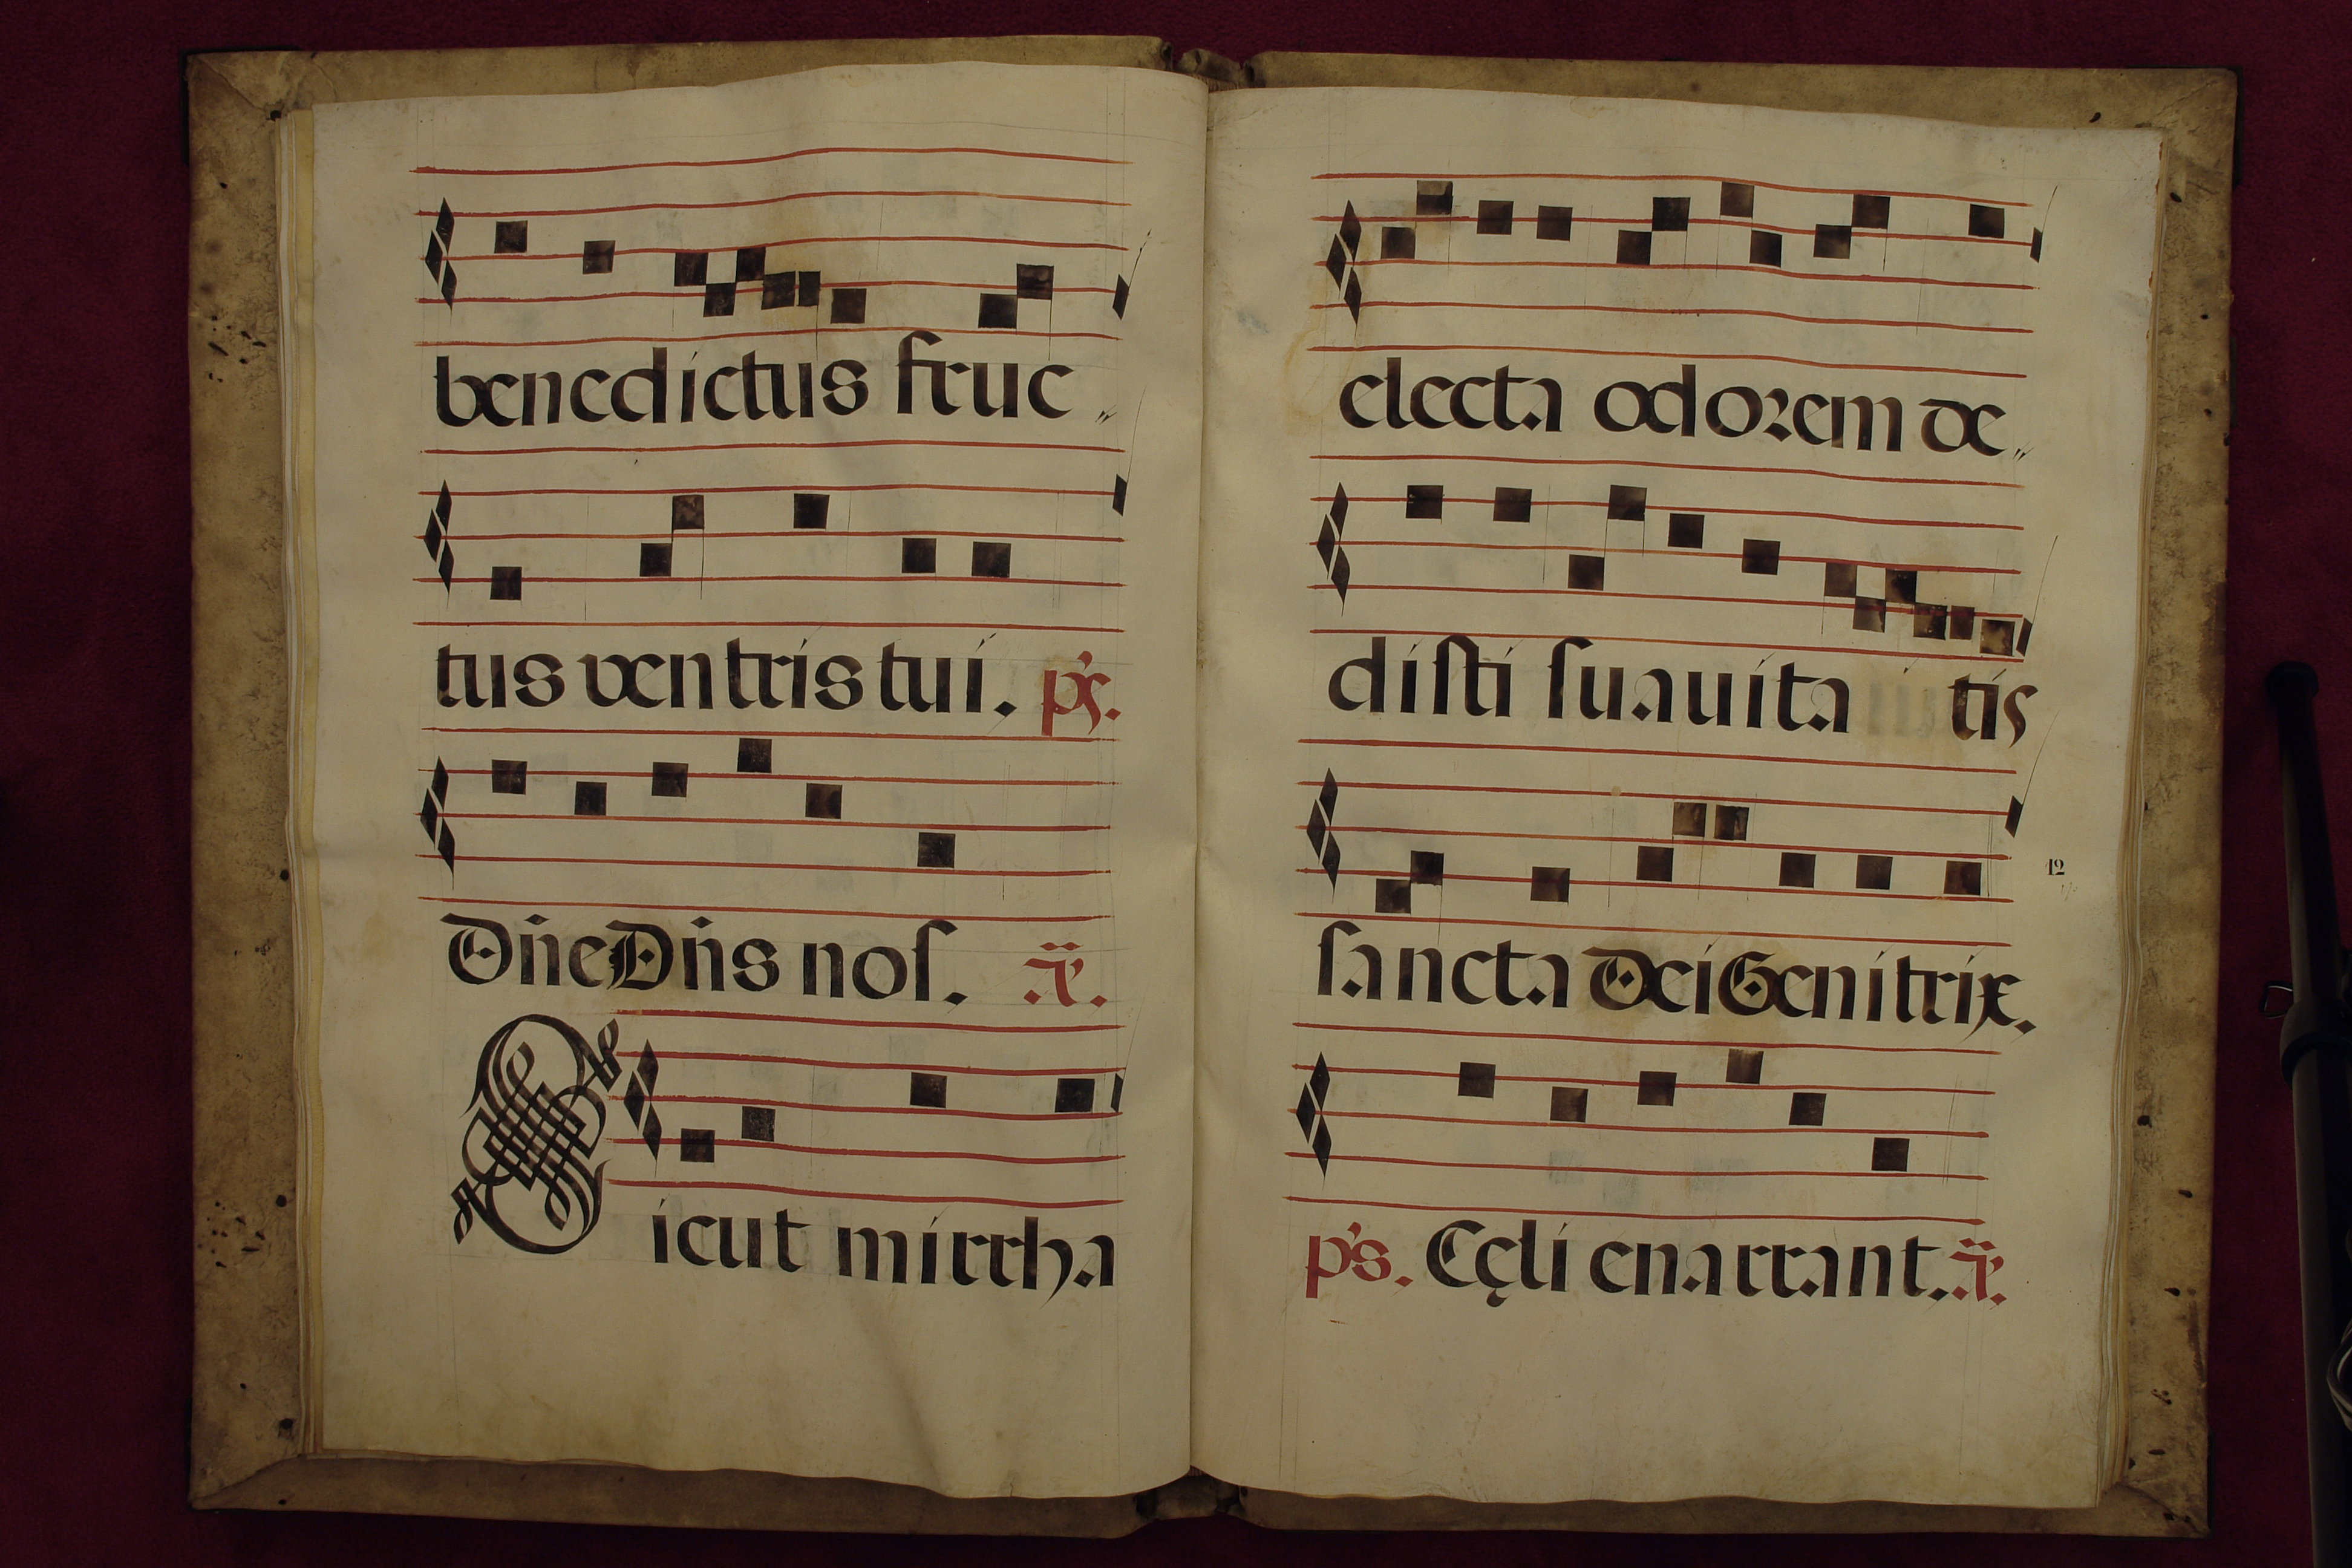 benedictus fruc„
tus ventris tui. ps.
Dn̄e Dn̄s nos. ã.
Sicut mirrha
electa odorem de„
disti suauita tis
sancta Dei Genitrix.
12
ps. Cęli enarrant. ã.